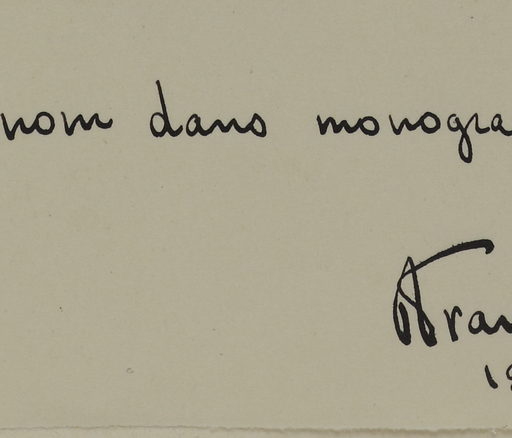 nom dans monogra
Fran
19